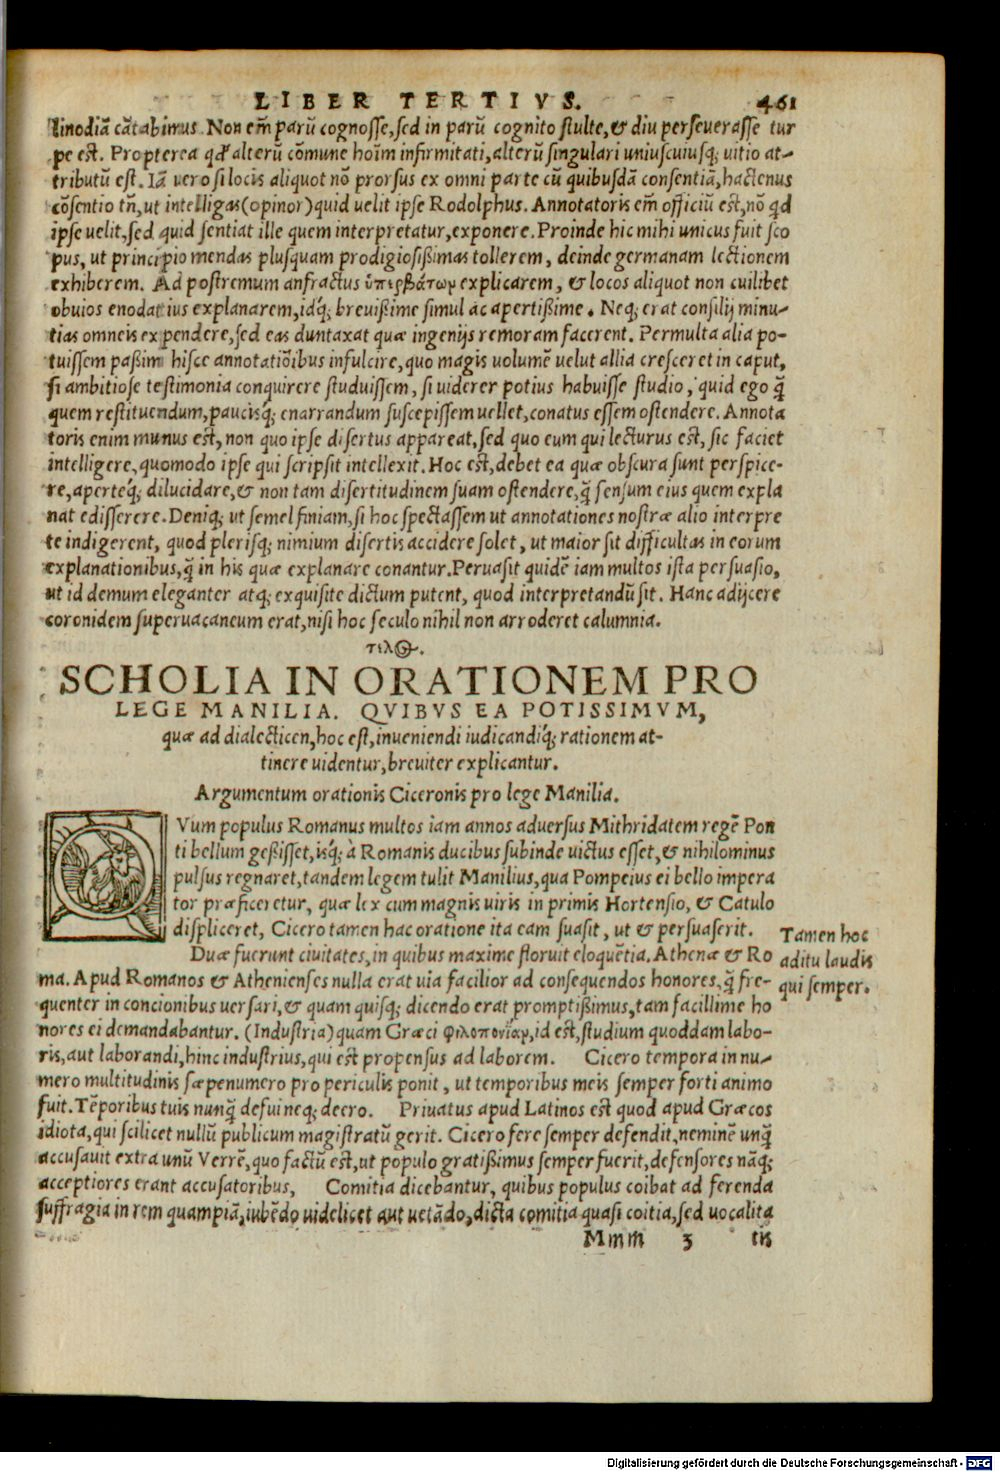 LIBER TERTIVS. 461
linodiā cātabimus. Non em̄ parū cognosse, sed in parū cognito stulte, & diu perseuerasse tur
pe est. Propterea qđ alterū cōmune hoīm infirmitati, alterū singulari uniuscuiusq; uitio at-
tributū est. Iā uero si locis aliquot nō prorsus ex omni parte cū quibusdā consentiā, hactenus
cōsentio tn̄, ut intelligas (opinor) quid uelit ipse Rodolphus. Annotatoris em̄ officiū est, nō qd
ipse uelit, sed quid sentiat ille quem interpretatur, exponere. Proinde hic mihi unicus fuit sco
pus, ut principio mendas plusquam prodigiosißimas tollerem, deinde germanam lectionem
exhiberem. Ad postremum anfractus ὑπερβάτωμ explicarem, & locos aliquot non cuilibet
obuios enodatius explanarem, idq́; breuißime simul ac apertißime. Neq; erat consilij minu-
tias omneis expendere, sed eas duntaxat quæ ingenijs remoram facerent. Permulta alia po-
tuissem paßim hisce annotatiōibus infulcire, quo magis uolumē uelut allia cresceret in caput,
si ambitiose testimonia conquirere studuissem, si uiderer potius habuisse studio, quid ego q̄
quem restituendum, paucisq́; enarrandum suscepissem uellet, conatus essem ostendere. Annota
toris enim munus est, non quo ipse disertus appareat, sed quo eum qui lecturus est, sic faciet
intelligere, quomodo ipse qui scripsit intellexit. Hoc est, debet ea quæ obscura sunt perspice-
re, aperteq́; dilucidare, & non tam disertitudinem suam ostendere, q̄ sensum eius quem expla
nat edisserere. Deniq; ut semel finiam, si hoc spectassem ut annotationes nostræ alio interpre
te indigerent, quod plerisq; nimium disertis accidere solet, ut maior sit difficultas in eorum
explanationibus, q̄ in his quæ explanare conantur. Peruasit quidē iam multos ista persuasio,
ut id demum eleganter atq; exquisite dictum putent, quod interpretandū sit. Hanc adijcere
coronidem superuacaneum erat, nisi hoc seculo nihil non arroderet calumnia.
τιλος.
SCHOLIA IN ORATIONEM PRO
LEGE MANILIA. QVIBVS EA POTISSIMVM,
quæ ad dialecticen, hoc est, inueniendi iudicandiq́; rationem at-
tinere uidentur, breuiter explicantur.
Argumentum orationis Ciceronis pro lege Manilia.
CVum populus Romanus multos iam annos aduersus Mithridatem regē Pon
ti bellum geßisset, isq́; à Romanis ducibus subinde uictus esset, & nihilominus
pulsus regnaret, tandem legem tulit Manilius, qua Pompeius ei bello impera
tor præficeretur, quæ lex cum magnis uiris in primis Hortensio, & Catulo
displiceret, Cicero tamen hac oratione ita eam suasit, ut & persuaserit.
Tamen hoc
aditu laudis
qui semper.
Duæ fuerunt ciuitates, in quibus maxime floruit eloquētia. Athenæ & Ro
ma. Apud Romanos & Athenienses nulla erat uia facilior ad consequendos honores, q̄ fre-
quenter in concionibus uersari, & quam quisq; dicendo erat promptißimus, tam facillime ho
nores ei demandabantur. (Industria) quam Græci φιλοπονίαμ, id est, studium quoddam labo-
ris, aut laborandi, hinc industrius, qui est propensus ad laborem. Cicero tempora in nu-
mero multitudinis sæpenumero pro periculis ponit, ut temporibus meis semper forti animo
fuit. Tēporibus tuis nunq̄ defui neq; deero. Priuatus apud Latinos est quod apud Græcos
idiota, qui scilicet nullū publicum magistratū gerit. Cicero fere semper defendit, neminē unq̄
accusauit extra unū Verrē, quo factū est, ut populo gratißimus semper fuerit, defensores nāq;
acceptiores erant accusatoribus, Comitia dicebantur, quibus populus coibat ad ferenda
suffragia in rem quampiā, iubēdo uidelicet aut uetādo, dicta comitia quasi coitia, sed uocalita
Mmm 3 tis
Digitalisierung gefördert durch die Deutsche Forschungsgemeinschaft - DFG